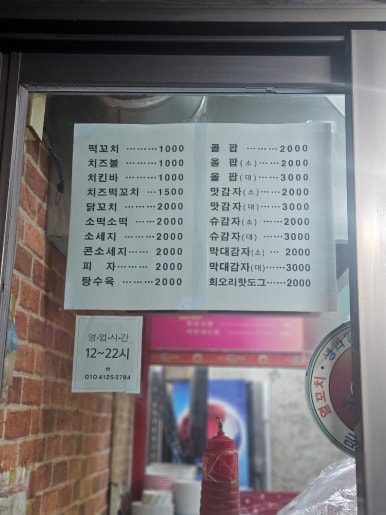 떡꼬치 ……… 1000
치즈볼 ……… 1000
치킨바 ……… 1000
치즈떡꼬치 … 1500
닭꼬치 ……… 2000
소떡소떡 …… 2000
소세지 ……… 2000
콘소세지 …… 2000
피 자 ……… 2000
탕수육 ……… 2000
콜 팝 ……… 2000
올 팝(소) …… 2000
올 팝(대) …… 3000
맛감자(소) …… 2000
맛감자(대) …… 3000
슈감자(소) …… 2000
슈감자(대) …… 3000
막대감자(소) … 2000
막대감자(대) … 3000
회오리핫도그 …… 2000
영·업·시·간
12~22시
☎
010-4125-3784